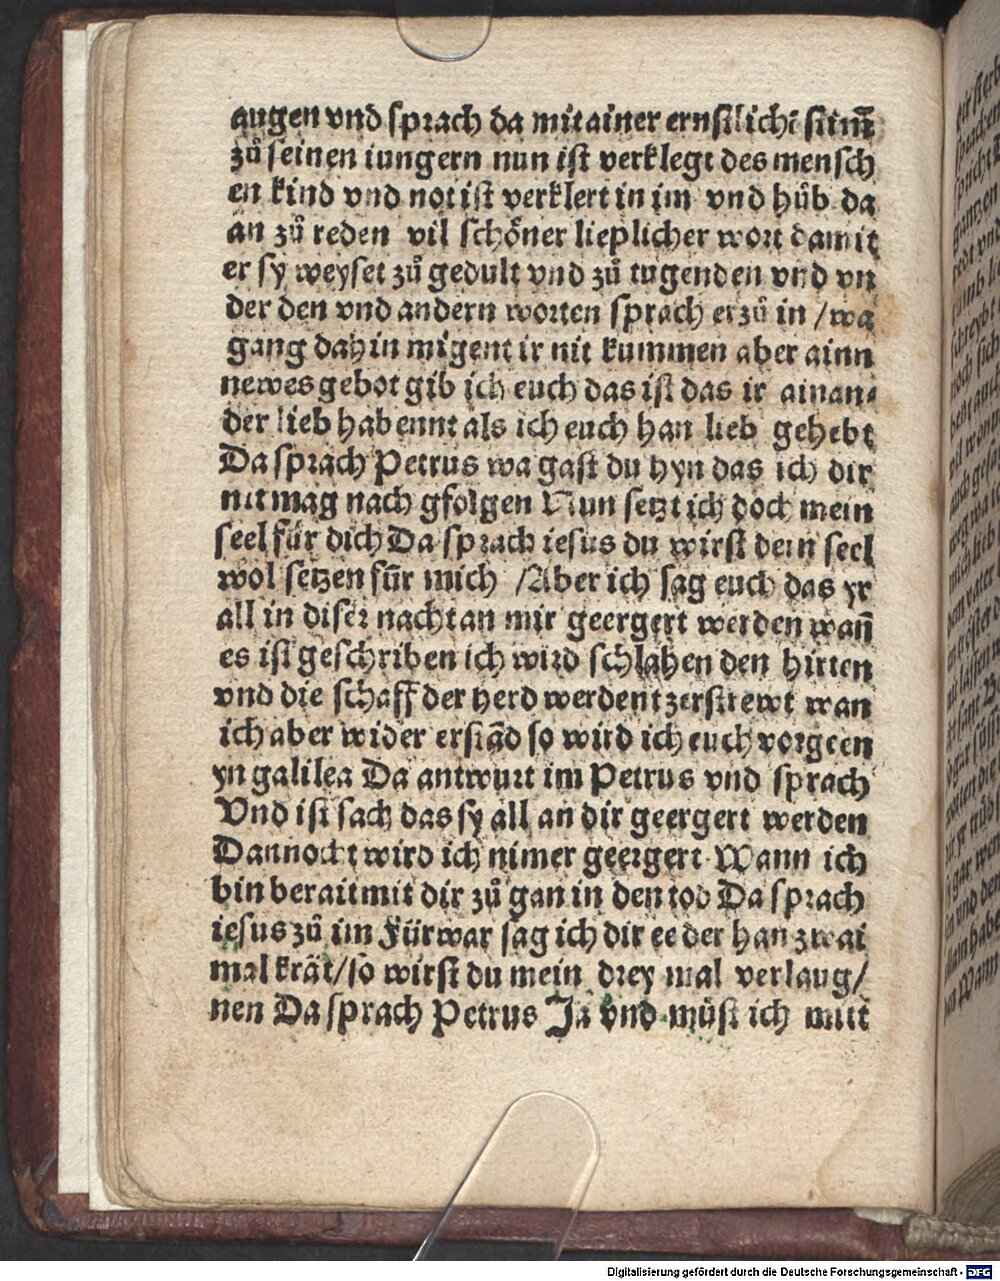 augen vnd sprach da mitainer ernstlichē stim̄
zů seinen iungern nun ist verklegt des mensch
en kind vnd not ist verklert in im vnd hůb da
an zů reden vil schöner lieplicher wort damit
er sy weyset zů gedult vnd zů tugenden vnd vn
der den vnd andern worten sprach er zů in /wa
gang dahin migent ir nit kummen aber ainn
newes gebot gib ich euch das ist das ir ainan⸗
der lieb habennt als ich euch han lieb gehebt
Da sprach Petrus wa gast du hyn das ich dir
nit mag nach gfolgen Nun setzt ich doch mein
seel für dich Da sprach iesus du wirst dein seel
wol setzen für mich /Aber ich sag euch das yr
all in diser nacht an mir geergert werden wan̄
es ist geschriben ich wird schlahen den hirten
vnd die schaff der herd werdent zerstrewt wan
ich aber wider erstād so wird ich euch vorgeen
yn galilea Da antwurt im Petrus vnd sprach
Vnd ist sach das sy all an dir geergert werden
Dannocht wird ich nimer geergert Wann ich
bin berait mit dir zů gan in den tod Da sprach
iesus zů im Fürwar sag ich dir ee der han zwai
mal krät/so wirst du mein drey mal verlaug/
nen Da sprach Petrus Ja vnd můst ich mitt
Digitalisierung gefördert durch die Deutsche Forschungsgemeinschaft - DFG